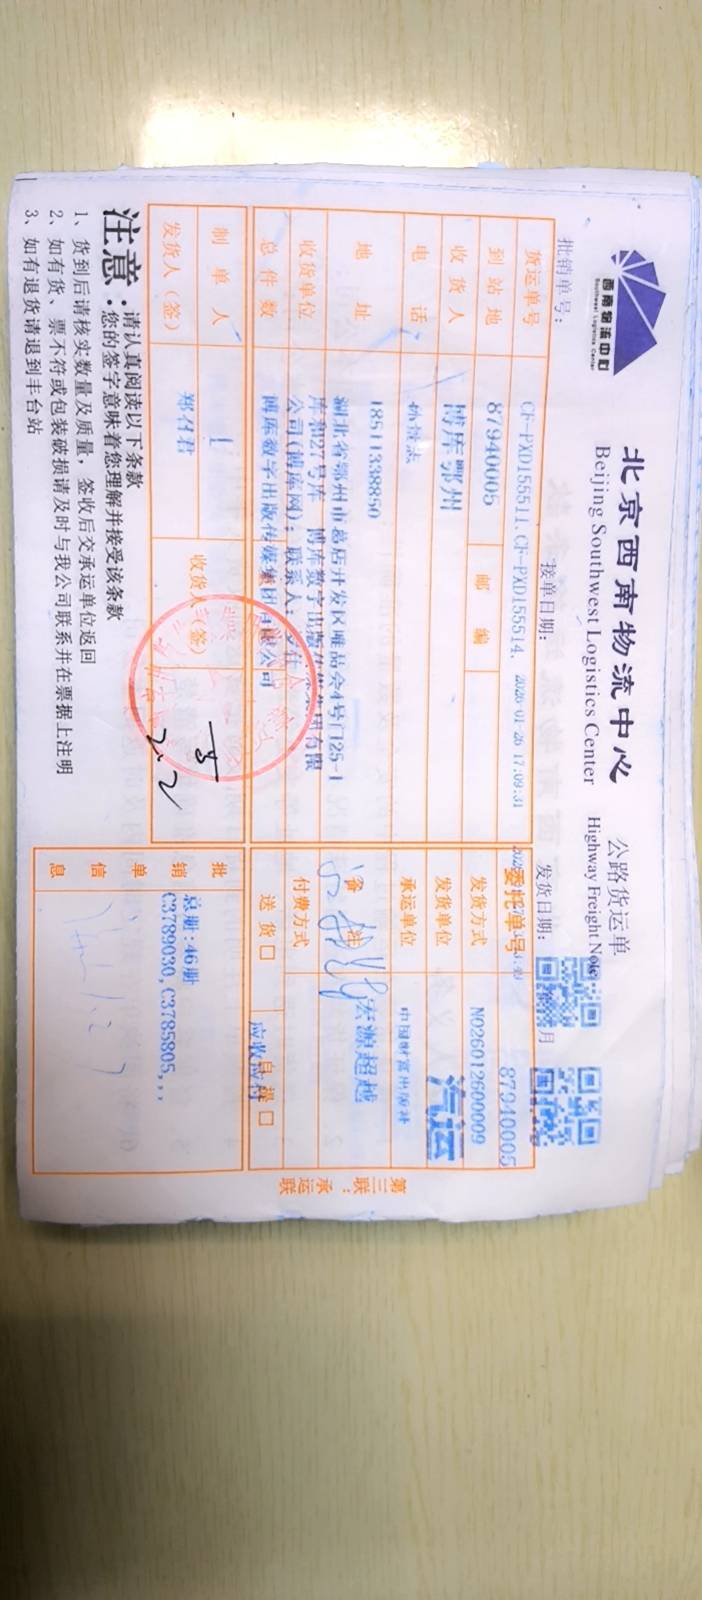 西南物流中心
Southwest Logistics Center
北京西南物流中心
Beijing Southwest Logistics Center
公路货运单
Highway Freight Note
批销单号：
CF-PXD155511,CF-PXD155514,
接单日期：
2026-01-26 17:09:31
发货日期：
月
货运单号
87940005
委托单号
87940005
到站地
博库鄂州
邮编
发货方式
NO26012600009
汽运
收货人
发货单位
中国财富出版社
电话
18511338850
承运单位
宏源超越
地址
湖北省鄂州市葛店开发区唯品会4号门25-1
库和27号库 博库数字出版传媒集团有限
公司(博库网)；联系人：
备注
收货单位
博库数字出版传媒集团有限公司
付费方式
应收应付
总件数
1
送货□
自提□
制单人
郑召君
收货人（签）
发货人（签）
2.2
批销单信息
总册:46册
C3789030,C3785805,,,
第三联：承运联
注意：
请认真阅读以下条款
您的签字意味着您理解并接受该条款
1、货到后请核实数量及质量，签收后交承运单位返回
2、如有货、票不符或包装破损请及时与我公司联系并在票据上注明
3、如有退货请退到丰台站